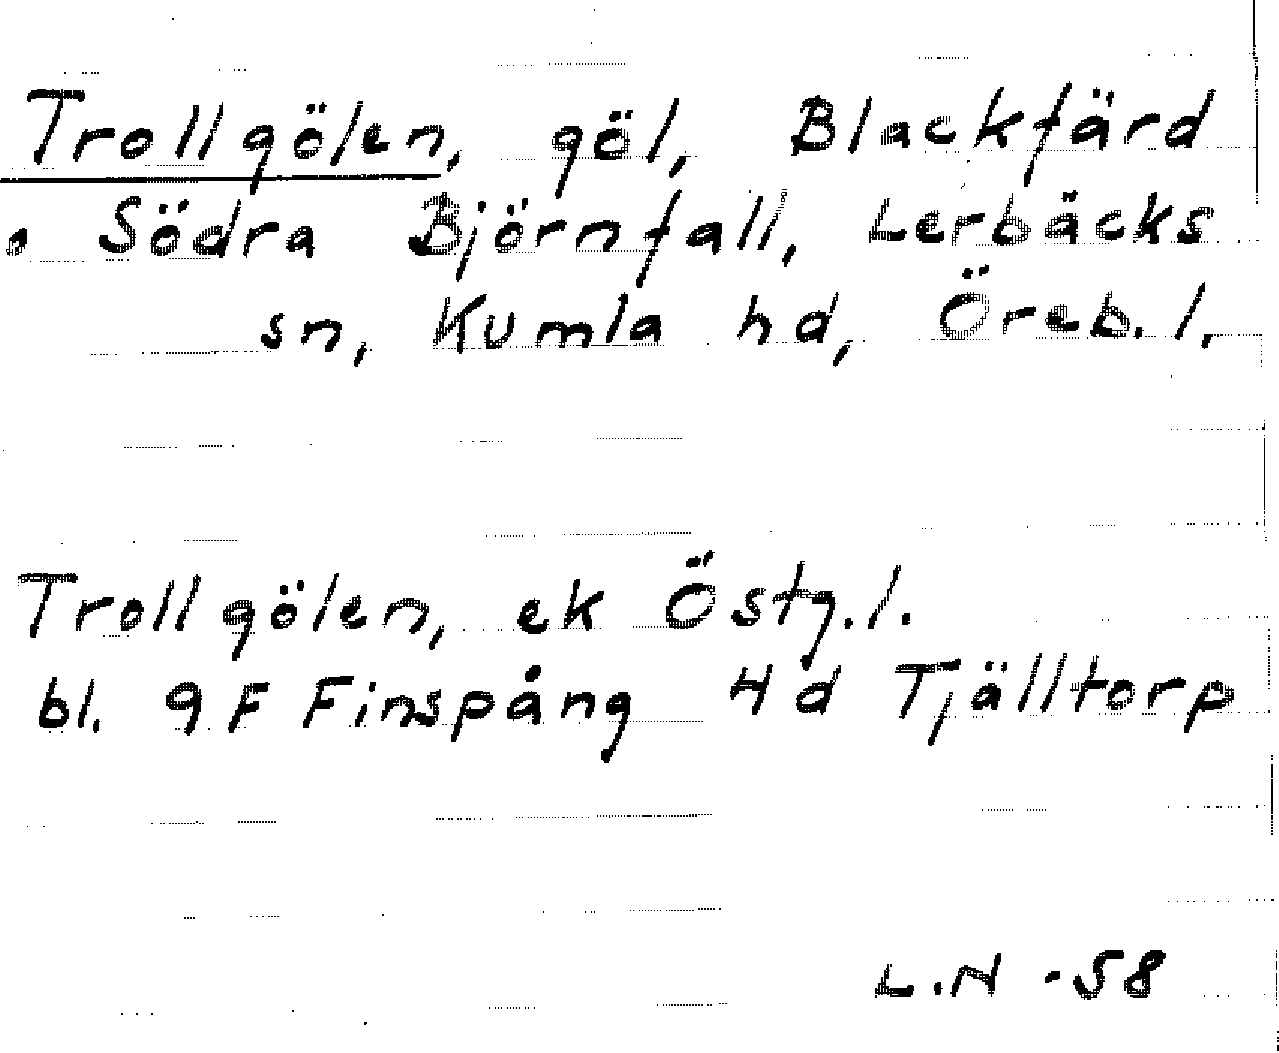 Trollgölen, göl, Blackfärd
o Södra Björnfall, Lerbäcks
sn, Kumla hd, Öreb. l.
Trollgölen, ek Östg.l.
bl. 9F Finspång 4d Tjälltorp
L.N -58